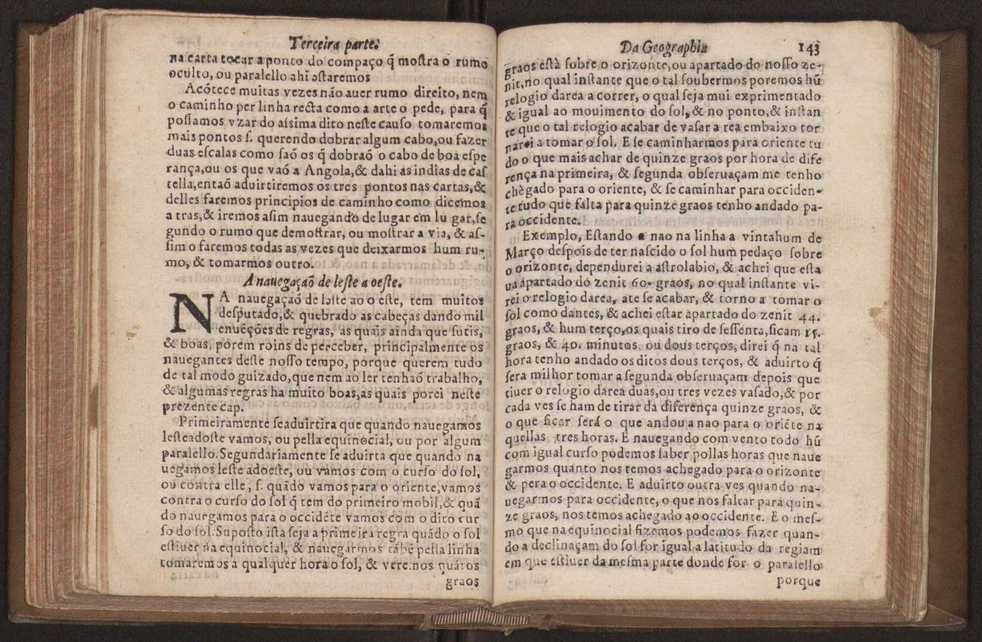 Terceira parte.
na carta tocar a ponto do compaço q̃ mostra o rumo
oculto, ou paralello ahi ostaremos
Acõtece muitas vezes não auer rumo direito, nem
o caminho per linha recta como a arte o pede, para q̃
possamos vzar do assima dito neste causo tomaremos
mais pontos s. querendo dobrar algum cabo, ou fazer
duas escalas como saõ os q̃ dobraõ o cabo de boa espe
rança, ou os que vaõ a Angola, & dahi as indias de Cas
tella, entaõ aduirtiremos os tres pontos nas cartas, &
delles faremos principios de caminho como dicemos
a tras, & iremos asim nauegando de lugar em lu gar, se
gundo o rumo que demostrar, ou mostrar a via, & as-
sim o faremos todas as vezes que deixarmos hum ru-
mo, & tomarmos outro.
A nauegaçaõ de leste a oeste.
NA nauegaçaõ de leste ao oeste, tem muitos
desputado, & quebrado as cabeças dando mil
enuẽções de regras, as quais ainda que sutis,
& boas, porem roins de perceber, principalmente os
nauegantes deste nosso tempo, porque querem tudo
de tal modo guizado, que nem ao ler tenhaõ trabalho,
& algumas regras ha muito boas, as quais porei neste
prezente cap.
Primeiramente se aduirtira que quando nauegamos
lesteadoste vamos, ou pella equinocial, ou por algum
paralello. Segundariamente se aduirta que quando na
uegamos leste adoeste, ou vamos com o curso do sol,
ou contra elle, s. quãdo vamos para o oriente, vamos
contra o curso do sol q̃ tem do primeiro mobil, & quã
do nauegamos para o occidẽte vamos com o dito cur
so do sol. Suposto ista seja a primeira regra quãdo o sol
estiuer na equinocial, & nauegarmos tãbẽ pella linha
tomaremos a qualquer hora o sol, & veremos quãtos
graos
Da Geographia 143
graos està sobre o orizonte, ou apartado do nosso ze-
nit, no qual instante que o tal soubermos poremos hũ
relogio darea a correr, o qual seja mui exprimentado
& igual ao mouimento do sol, & no ponto, & instan
te que o tal relogio acabar de vasar a rea embaixo tor
narei a tomar o sol. E se caminharmos para oriente tu
do o que mais achar de quinze graos por hora de dife
rença na primeira, & segunda obseruaçam me tenho
chègado para o oriente, & se caminhar para occiden-
te tudo que falta para quinze graos tenho andado pa-
ra occidente.
Exemplo, Estando a nao na linha a vintahum de
Março despois de ter nascido o sol hum pedaço sobre
o orizonte, dependurei a astrolabio, & achei que esta
ua apartado do zenit 60. graos, no qual instante vi-
rei o relogio darea, ate se acabar, & torno a tomar o
sol como dantes, & achei estar apartado do zenit 44.
graos, & hum terço, os quais tiro de sessenta, ficam 15.
graos, & 40. minutos, ou dous terços, direi q̃ na tal
hora tenho andado os ditos dous terços, & aduirto q̃
sera milhor tomar a segunda obseruaçam depois que
tiuer o relogio darea duas, ou tres vezes vasado, & por
cada ves se ham de tirar da diferença quinze graos, &
o que ficar será o que andou a nao para o oriẽte na
quellas tres horas. E nauegando com vento todo hũ
com igual curso podemos saber pollas horas que naue
garmos quanto nos temos achegado para o orizonte
& pera o occidente. E aduirto outra ves quando na-
uegarmos para occidente, o que nos faltar para quin-
ze graos, nos temos achegado ao occidente. E o mes-
mo que na equinocial fizemos podemos fazer quan-
do a declinaçam do sol for igual a latitudo da regiam
em que estiuer da mesma parte donde for o paralello
porque